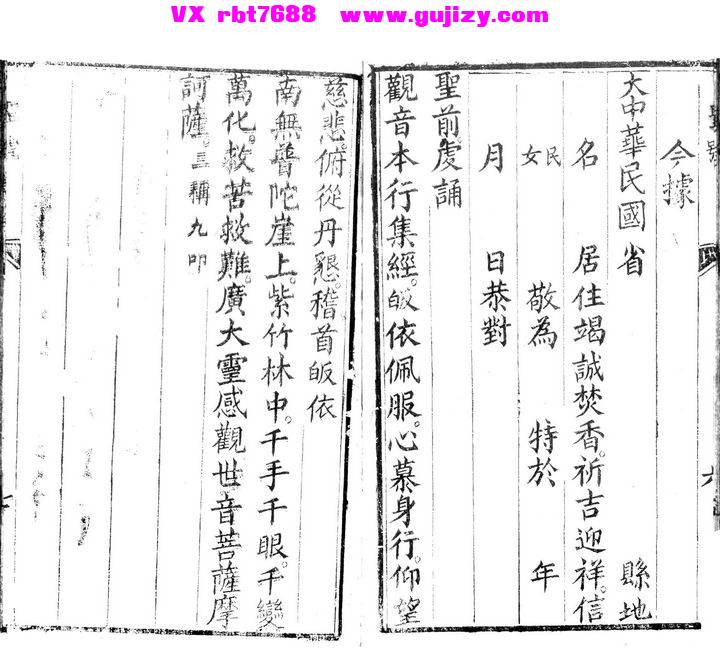 VX rbt7688 www.gujizy.com
今據
大中華民國 省 縣地
名 居住竭誠焚香。祈吉迎祥。信
民女 敬為 特於 年
月 日恭對
聖前。虔誦
觀音本行集經。皈依佩服。心慕身行。仰望
慈悲。俯從丹懇。稽首皈依
南無普陀崖上。紫竹林中。千手千眼。千變
萬化。救苦救難。廣大靈感觀世音菩薩摩
訶薩。三稱九叩